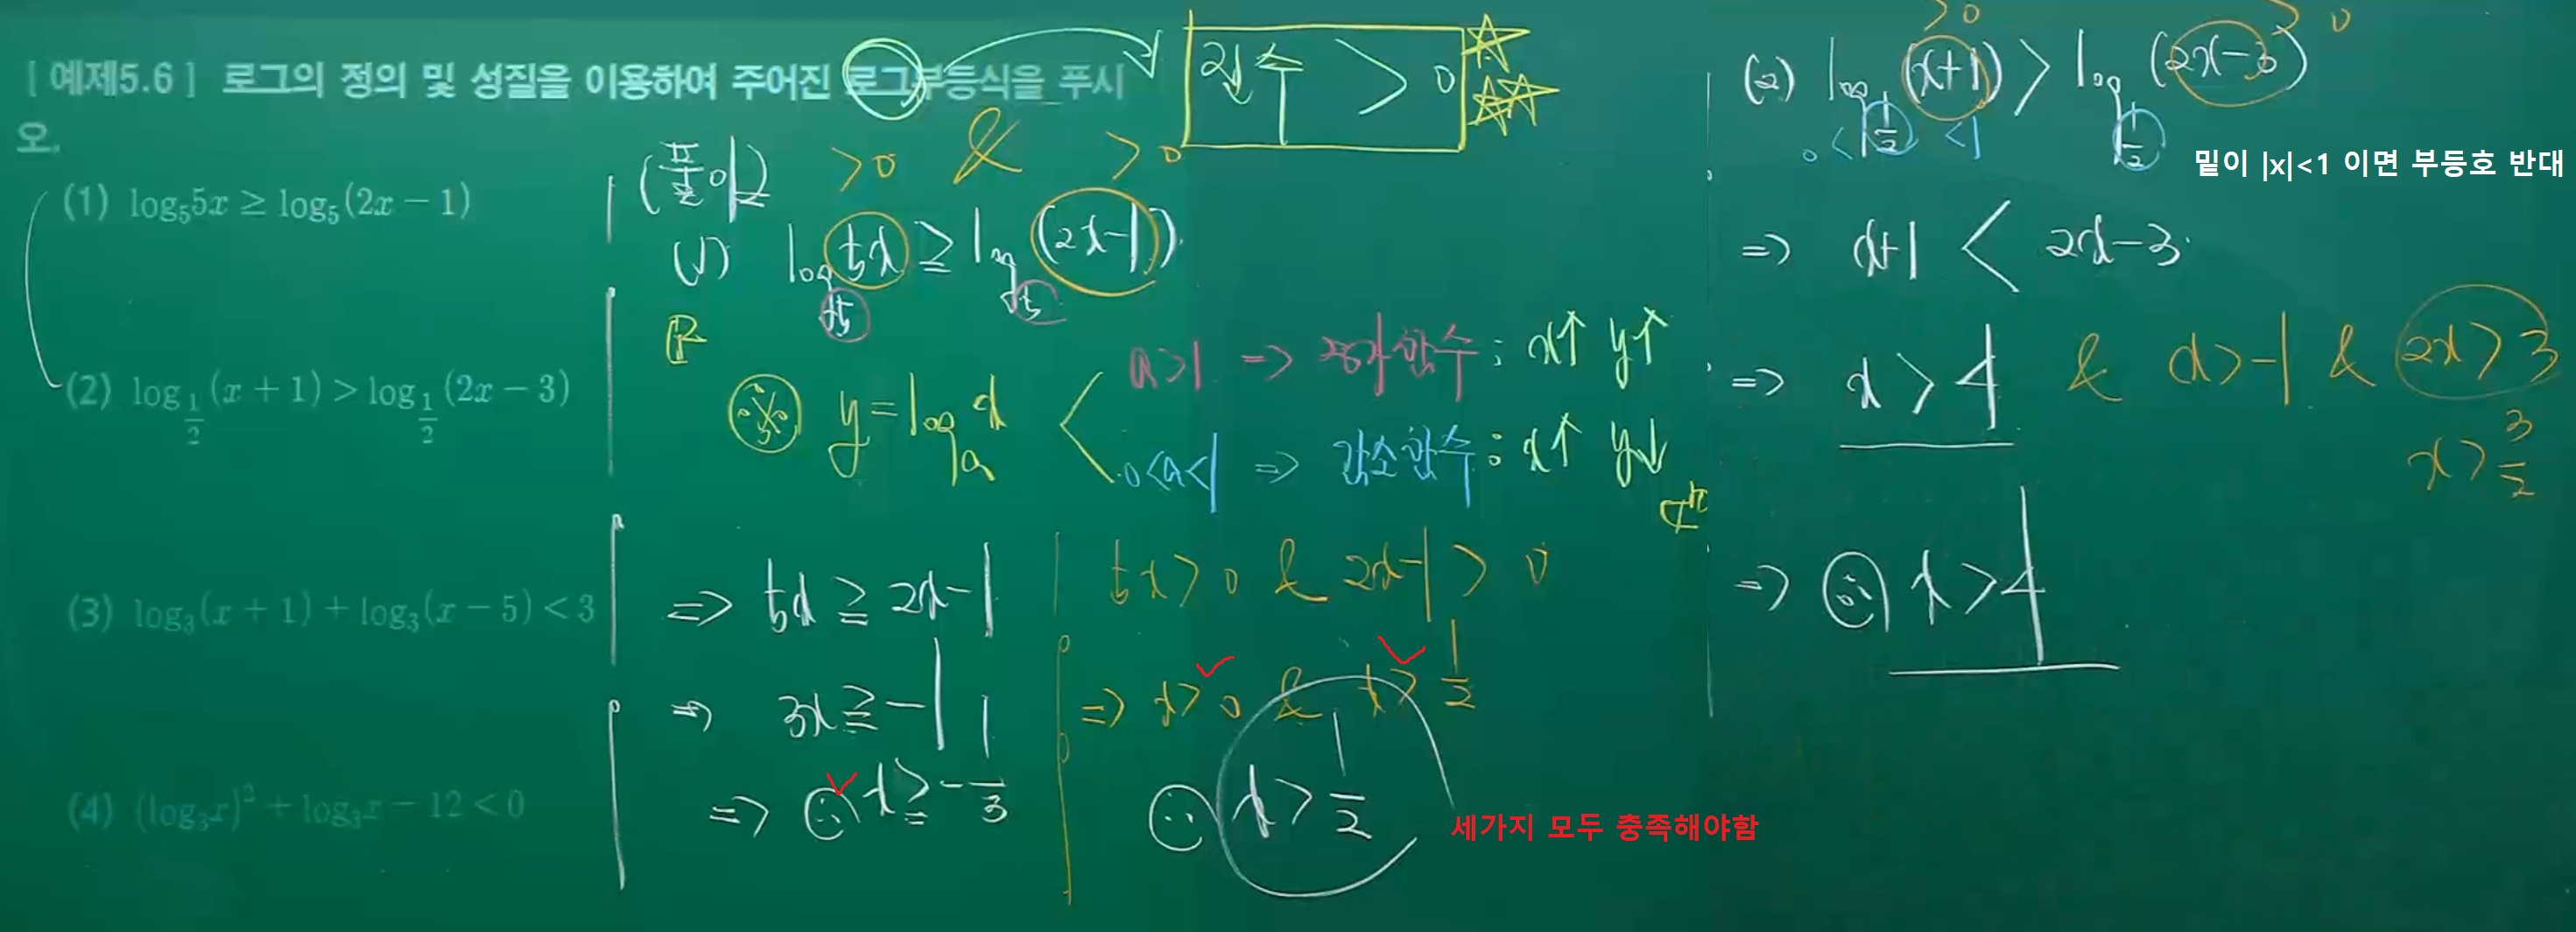 [ 예제5.6 ] 로그의 정의 및 성질을 이용하여 주어진 로그부등식을 푸시
오.
(1) log₅5x ≥ log₅(2x − 1)
(2) log_{1/2}(x + 1) > log_{1/2}(2x − 3)
(3) log₃(x + 1) + log₃(x − 5) < 3
(4) (log₃x)² + log₃x − 12 < 0
진수 > 0
(풀이)
> 0 & > 0
(1) log₅5x ≥ log₅(2x−1)
※ y = logₐx
a>1 => 증가함수 : x↑ y↑
0<a<1 => 감소함수 : x↑ y↓
=> 5x ≥ 2x−1
=> 3x ≥ −1
=> x ≥ −1/3
5x > 0 & 2x−1 > 0
=> x > 0 & x > 1/2
x > 1/2
세가지 모두 충족해야함
> 0 > 0
(2) log_{1/2}(x+1) > log_{1/2}(2x−3)
0 < 1/2 < 1
밑이 |x|<1 이면 부등호 반대
=> x+1 < 2x−3
=> x > 4 & x > −1 & 2x > 3
x > 3/2
=> x > 4